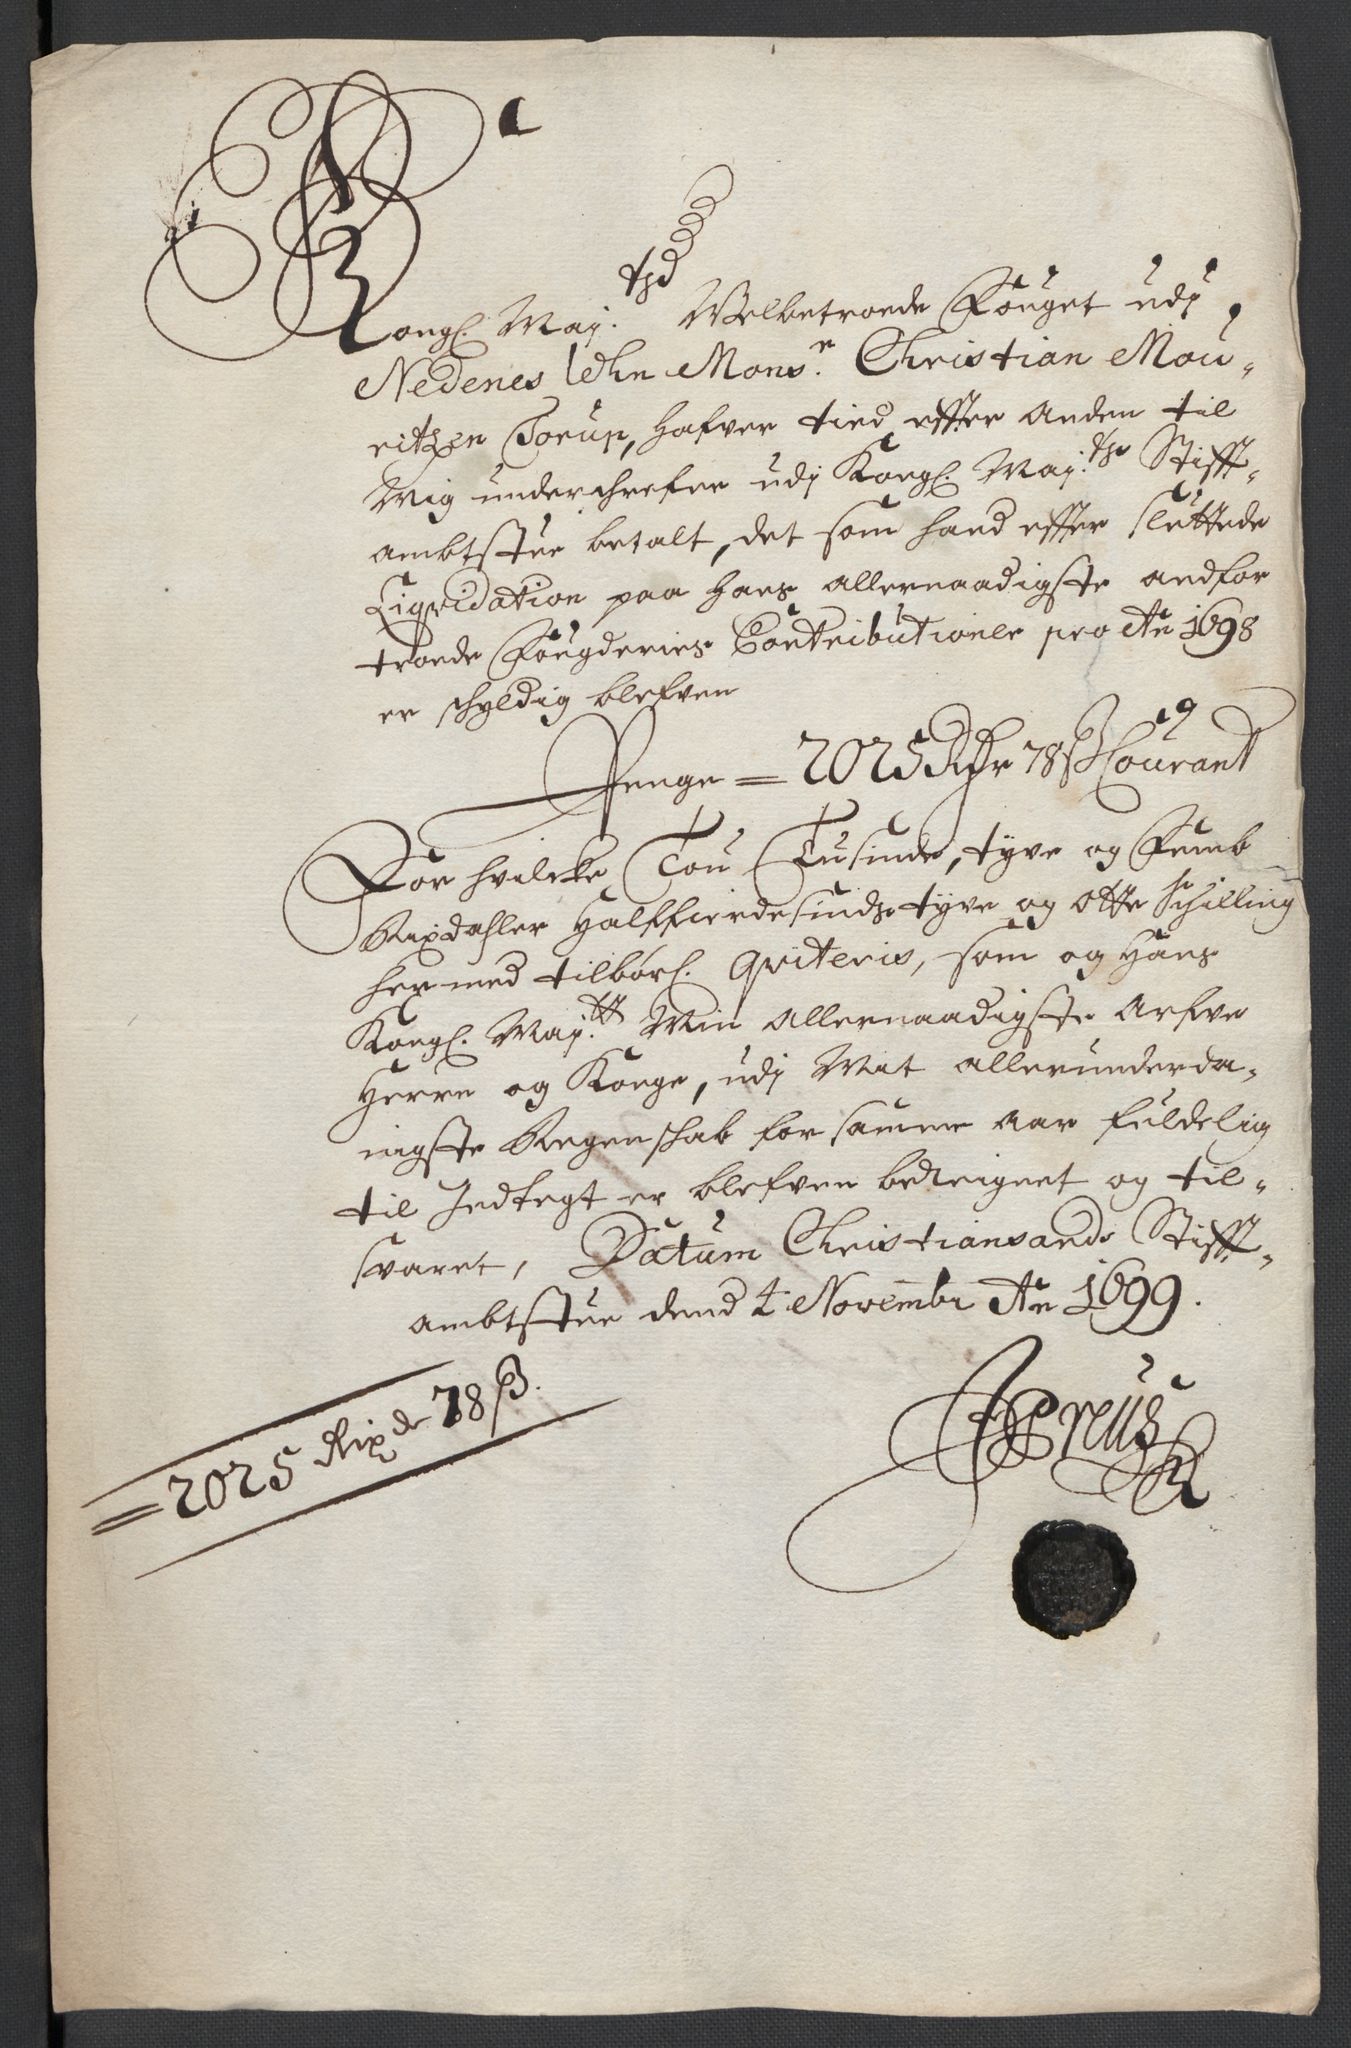 Kongl. Maj.tts Velbetroede Fouget udj
Nedenes Lehn Mons.r Christian Mou-
ritzen Torup, hafver tied effter anden til
Mig underschrefne udj Kongl. Maj.tts Stifft-
ambtstue betalt, det som hand effter sluttede
Liqvidation paa hans allernaadigste andfor
troede Fougderies Contributioner pro Ao 1698
er schyldig blefven
Penge = 2025 Rdr 78 ß Courant
For hvilcke Tou Tusinde, tyve og Femb
Rixdahler Halffierdesindstyve og Otte Schilling
her med tilbørl. Qviteris, som og Hans
Kongl. Maj.tt Min Allernaadigste Arfve
Herre og Konge, udj Mit allerunderda-
nigste Regenschab for samme Aar fuldelig
til Indtegt er blefven bereignet og til-
svaret, Datum Christiansands Stifft-
ambtstue dend 4 Novembr Ao 1699.
= 2025 Rixdr 78 ß.